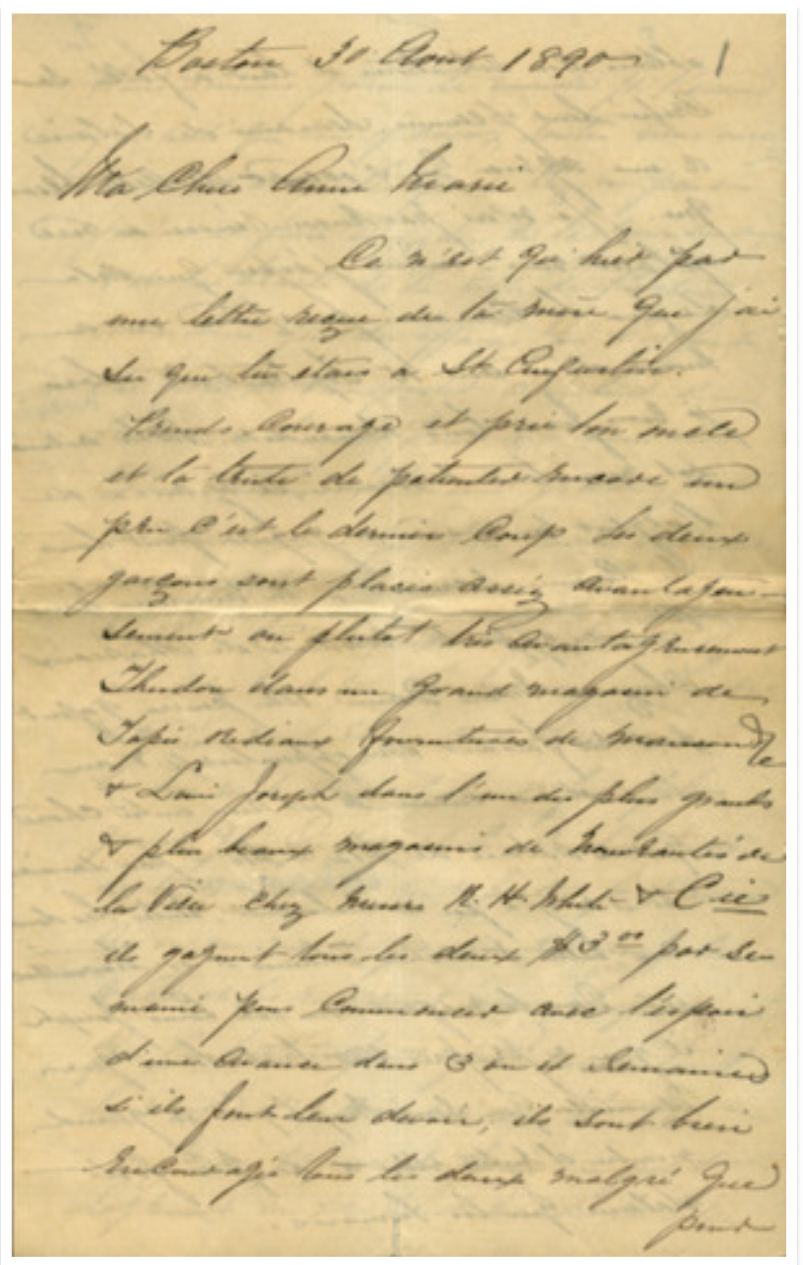 Boston 30 Aout 1890
1
Ma Chere Anne Marie
Ce n'est qu'hier par
une lettre reçue de ta mère que j'ai
su que tu étais a St. Augustin.
Prends Courage et prie ton
et la de patienter encore un
peu c'est le dernier Coup les deux
garçons sont placés assez avantageu-
sement ou plutot très avantageusement
dans un grand magasin de
Tapis Rideaux fournitures de maison &c
& Louis Joseph dans l'un des plus grands
& plus beaux magasins de Nouveautés de
la Ville chez Messrs R. H. White & Cie
ils gagnent tous les deux $3.00 par se
maine pour Commencer avec l'espoir
d'une avance dans 3 ou semaines
si ils font leur devoir, ils sont bien
encouragés tous les deux malgré que
pour